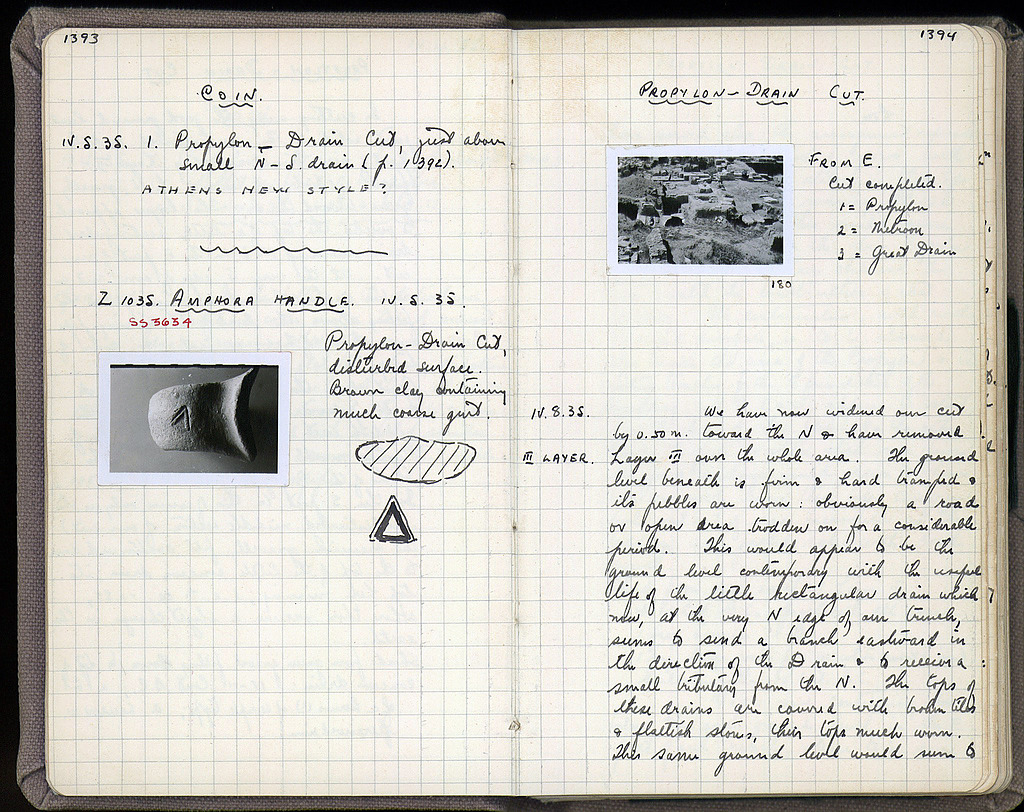 1393
COIN.
IV.S.35. 1. Propylon – Drain Cut, just above
small N–S. drain (p. 1392).
ATHENS NEW STYLE?
Z 1035. AMPHORA HANDLE. IV.S.35.
SS 5634
Propylon – Drain Cut,
disturbed surface.
Brown clay containing
much coarse grit.
1394
PROPYLON – DRAIN CUT.
FROM E.
Cut completed.
1 = Propylon
2 = Metroon
3 = Great Drain
180
IV.8.35. We have now widened our cut
by 0.50 m. toward the N & have removed
III LAYER. Layer III over the whole area. The ground
level beneath is firm & hard tramped &
its pebbles are worn: obviously a road
or open area trodden on for a considerable
period. This would appear to be the
ground level contemporary with the useful
life of the little rectangular drain which
now, at the very N edge of our trench,
seems to send a branch eastward in
the direction of the Drain & to receive a
small tributary from the N. The tops of
these drains are covered with broken tiles
& flattish stones, their tops much worn.
This same ground level would seem to